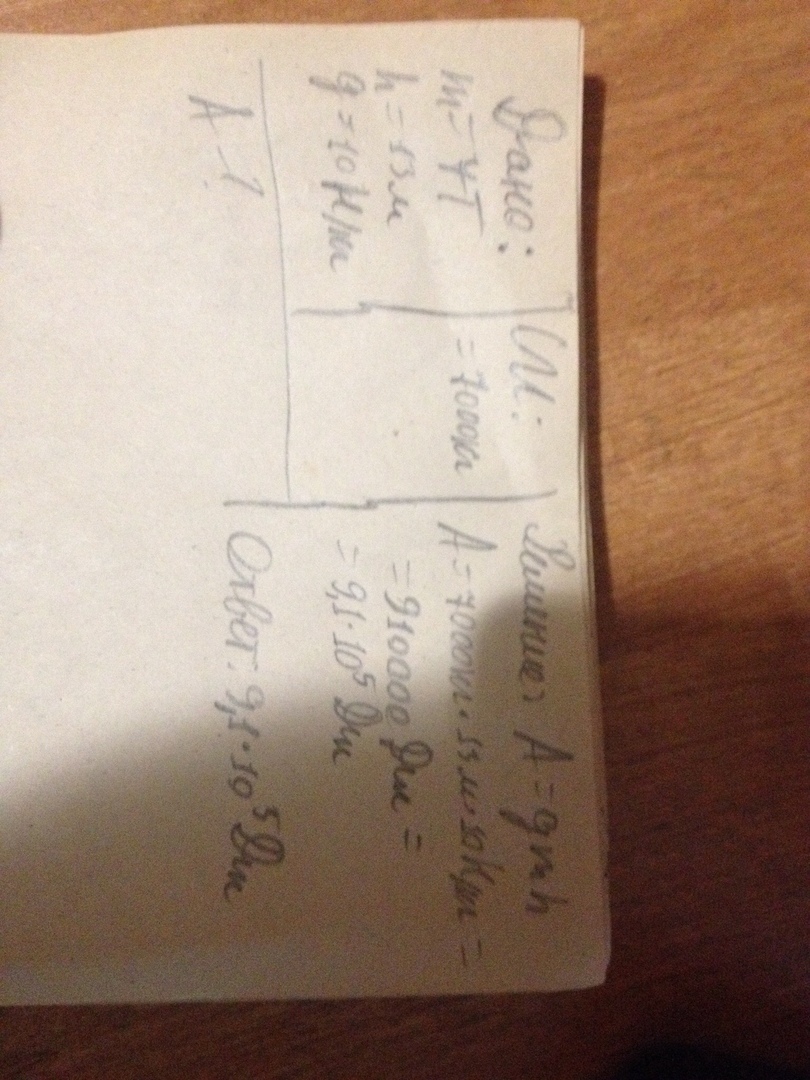 Дано:
m = 7т
h = 13м
g = 10 Н/кг
А - ?
СИ:
= 7000кг
Решение: A = gmh
A = 7000кг · 13м · 10Н/кг =
= 910000 Дж =
= 9,1 · 10⁵ Дж
Ответ: 9,1 · 10⁵ Дж